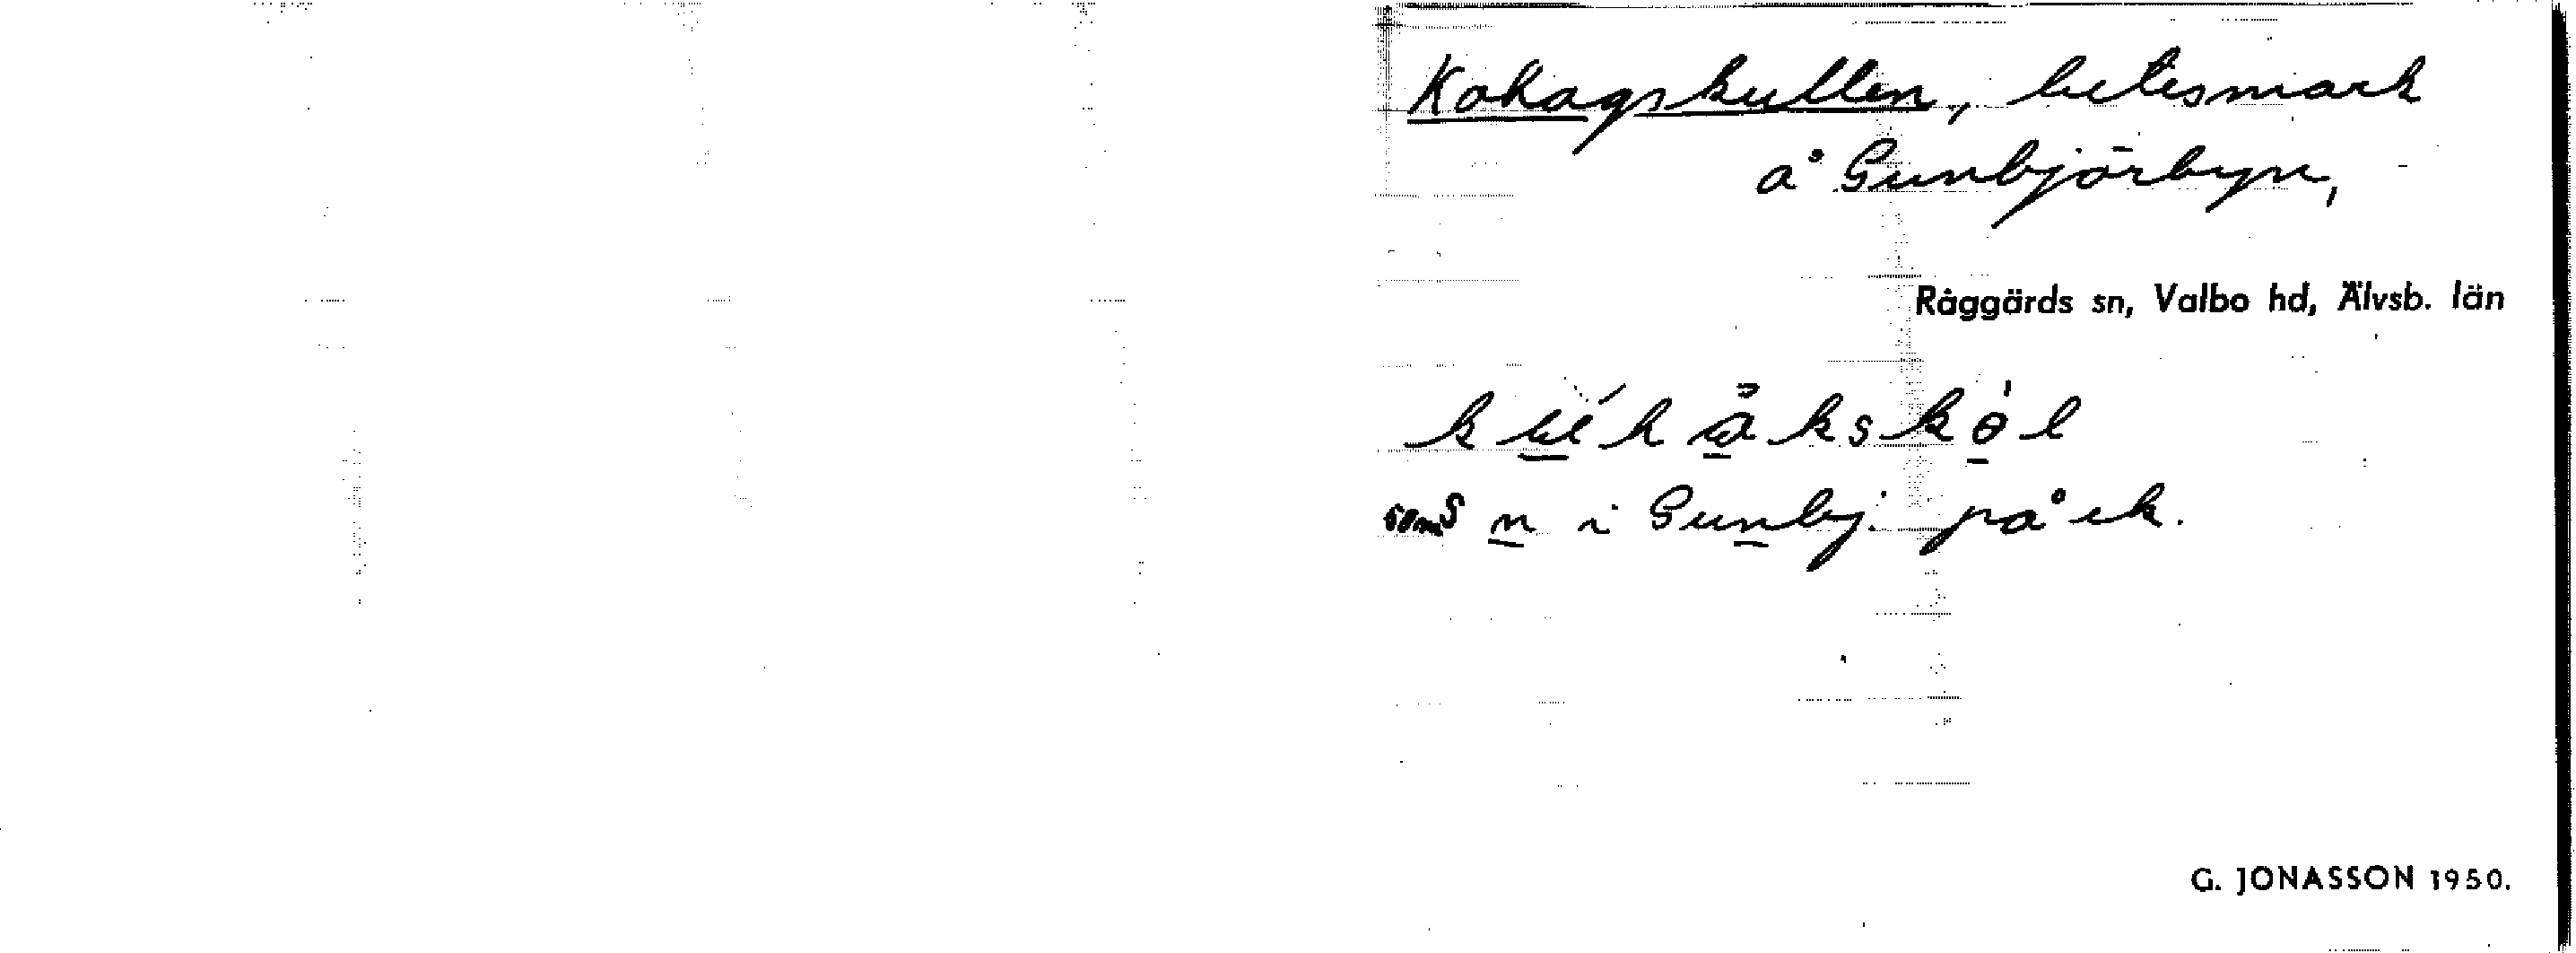 Kohagskullen, betesmark
å Gunbjörbyn,
Råggärds sn, Valbo hd, Älvsb. län
som S n i Gunbj. på ek.
G. JONASSON 1950.